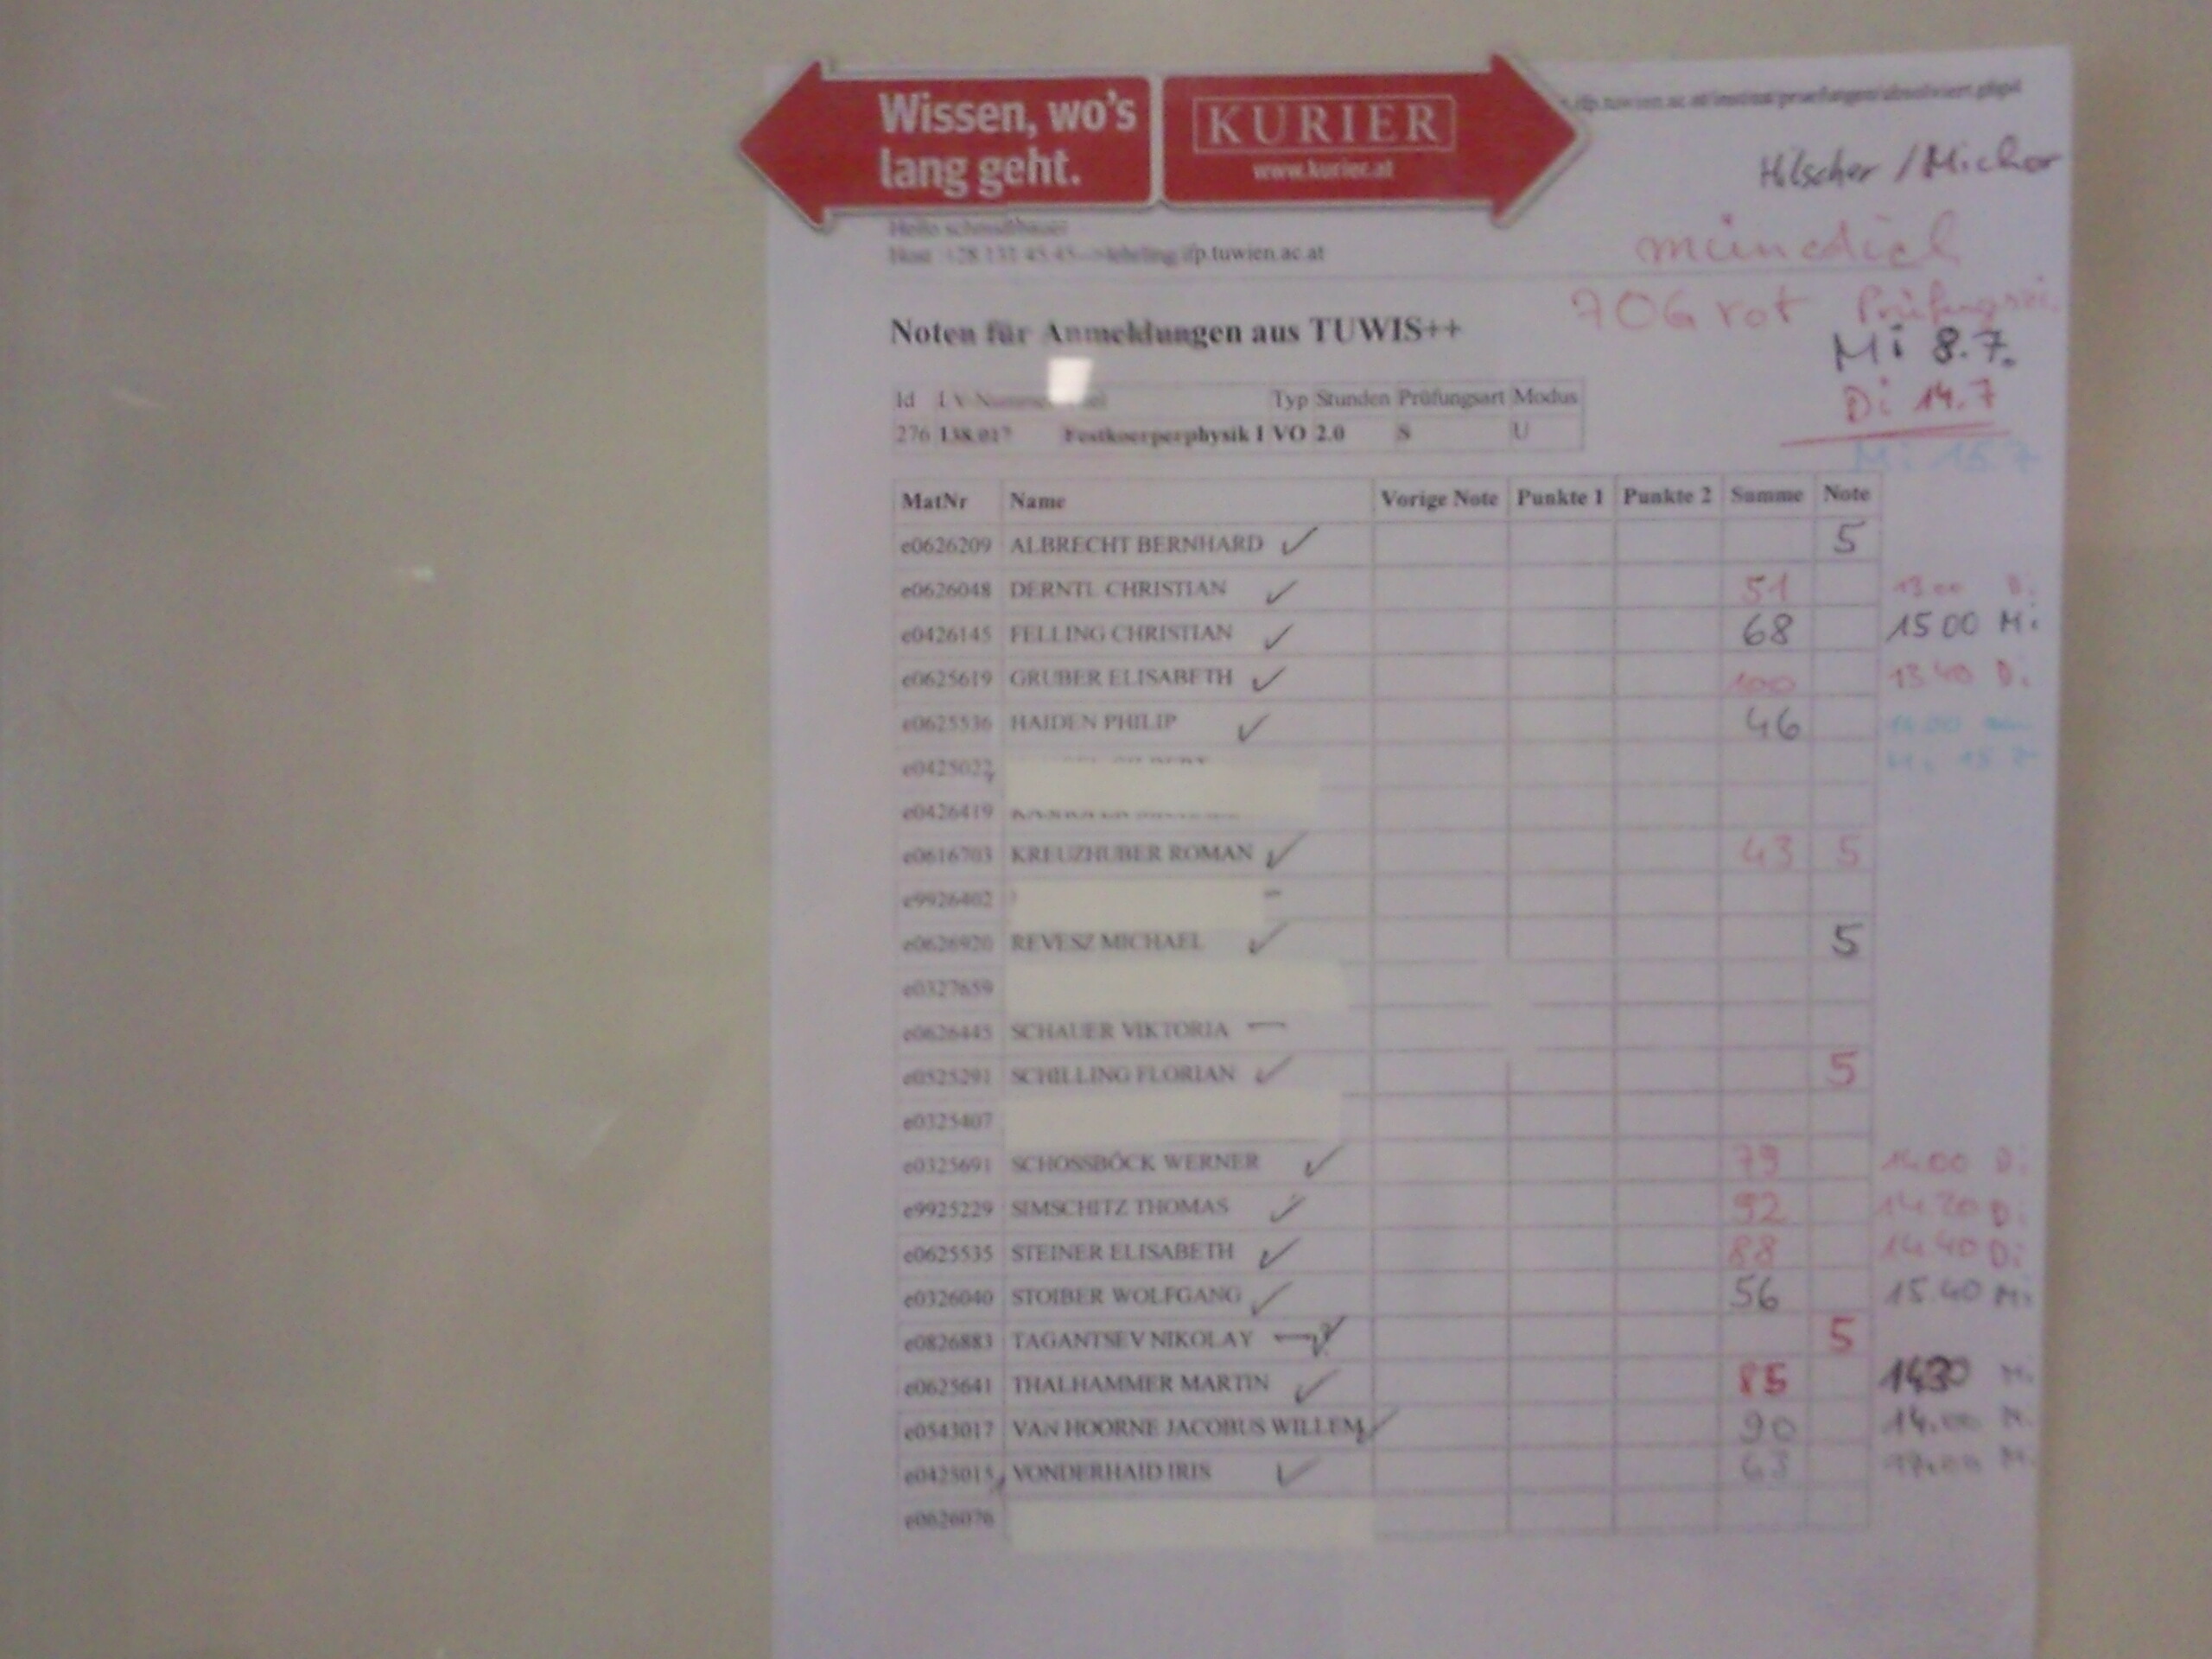 Wissen, wo's
lang geht.
KURIER
www.kurier.at
Hilscher / Michor
ifp.tuwien.ac.at
mündlich
706 rot
Noten für Anmeldungen aus TUWIS++
Mi 8.7.
Di 14.7
Mi 15.7
Id Typ Stunden Prüfungsart Modus
276 138.017 Festkoerperphysik I VO 2.0 S U
MatNr Name Vorige Note Punkte 1 Punkte 2 Summe Note
e0626209 ALBRECHT BERNHARD ✓ 5
e0626048 DERNTL CHRISTIAN ✓ 51 13.00 Di
e0426145 FELLING CHRISTIAN ✓ 68 15 00 Mi
e0625619 GRUBER ELISABETH ✓ 100 13 40 Di
e0625536 HAIDEN PHILIP ✓ 46
Mi 15.7
e0425022
e0426419
e0616703 KREUZHUBER ROMAN ✓ 43 5
e9926402
e0626920 REVESZ MICHAEL ✓ 5
e0327659
e0626445 SCHAUER VIKTORIA —
e0525291 SCHILLING FLORIAN ✓ 5
e0325407
e0325691 SCHOSSBÖCK WERNER ✓ 79 14.00 Di
e9925229 SIMSCHITZ THOMAS ✓ 92 14.20 Di
e0625535 STEINER ELISABETH ✓ 88 14 40 Di
e0326040 STOIBER WOLFGANG ✓ 56 15.40 Mi
e0826883 TAGANTSEV NIKOLAY 5
e0625641 THALHAMMER MARTIN ✓ 85 1430 Mi
e0543017 VAN HOORNE JACOBUS WILLEM ✓ 90 14.00 Mi
e0425015 VONDERHAID IRIS ✓ 63
e0626076